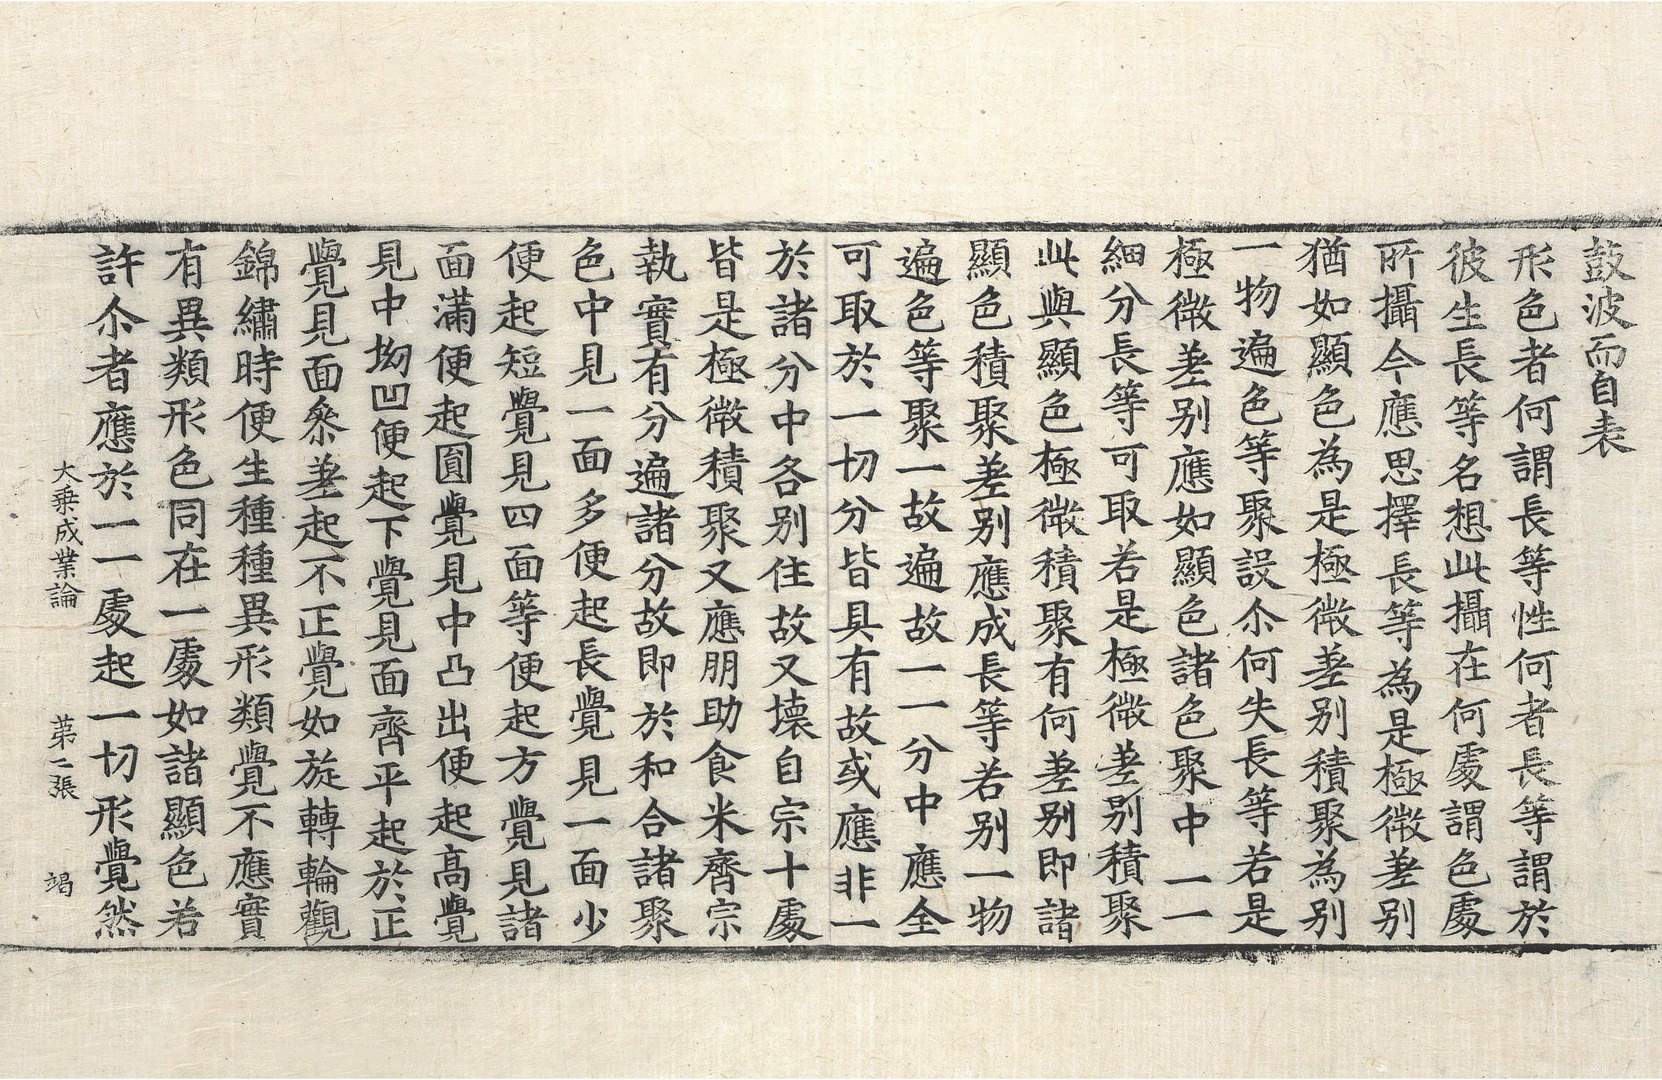 鼓波而自表
形色者何謂長等性何者長等謂於
彼生長等名想此攝在何處謂色處
所攝今應思擇長等為是極微差别
猶如顯色為是極微差别積聚為别
一物遍色等聚設尒何失長等若是
極微差别應如顯色諸色聚中一一
細分長等可取若是極微差别積聚
此與顯色極微積聚有何差别即諸
顯色積聚差别應成長等若别一物
遍色等聚一故遍故一一分中應全
可取於一切分皆具有故或應非一
於諸分中各别住故又壊自宗十處
皆是極微積聚又應朋助食米齊宗
執實有分遍諸分故即於和合諸聚
色中見一面多便起長覺見一面少
便起短覺見四面等便起方覺見諸
面滿便起圎覺見中凸出便起高覺
見中坳凹便起下覺見面齊平起於正
覺見面叅差起不正覺如旋轉輪觀
錦繡時便生種種異形類覺不應實
有異類形色同在一處如諸顯色若
許尒者應於一一處起一切形覺然
大乗成業論　第二張　竭